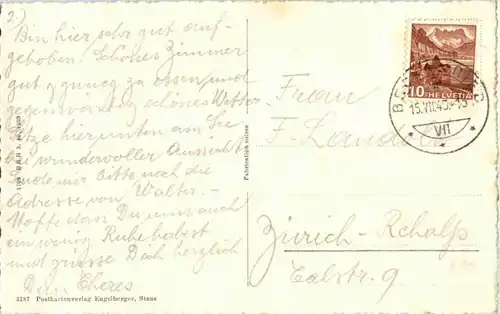 2)
Bin hier sehr gut auf-
gehoben. Schönes Zimmer
gut & genug zu essen und
gegenwärtig schönes Wetter.
Sitze hier unten am See
bei wundervoller Aussicht
Sende mir bitte noch die
Adresse von Walter. -
Hoffe dass Du nun auch
ein wenig Ruhe habest
und grüsse Dich herzlich
Dein
3187 Postkartenverlag Engelberger, Stans
Fabrication suisse
10 HELVETIA
15.VII.43
VII
Frau
F. Landolt
Zürich-Rehalp